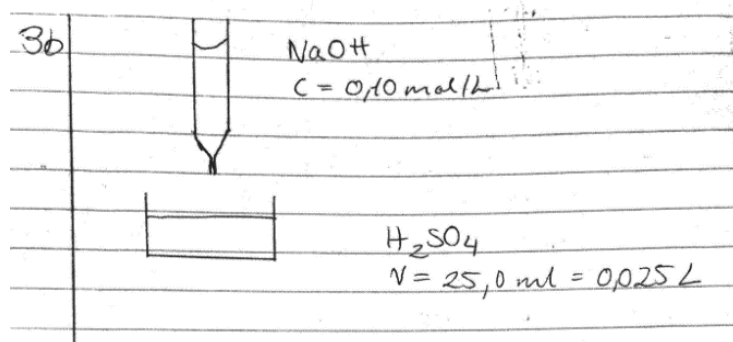 3b
NaOH
C = 0,10 mol/L
H₂SO₄
V = 25,0 ml = 0,025 L